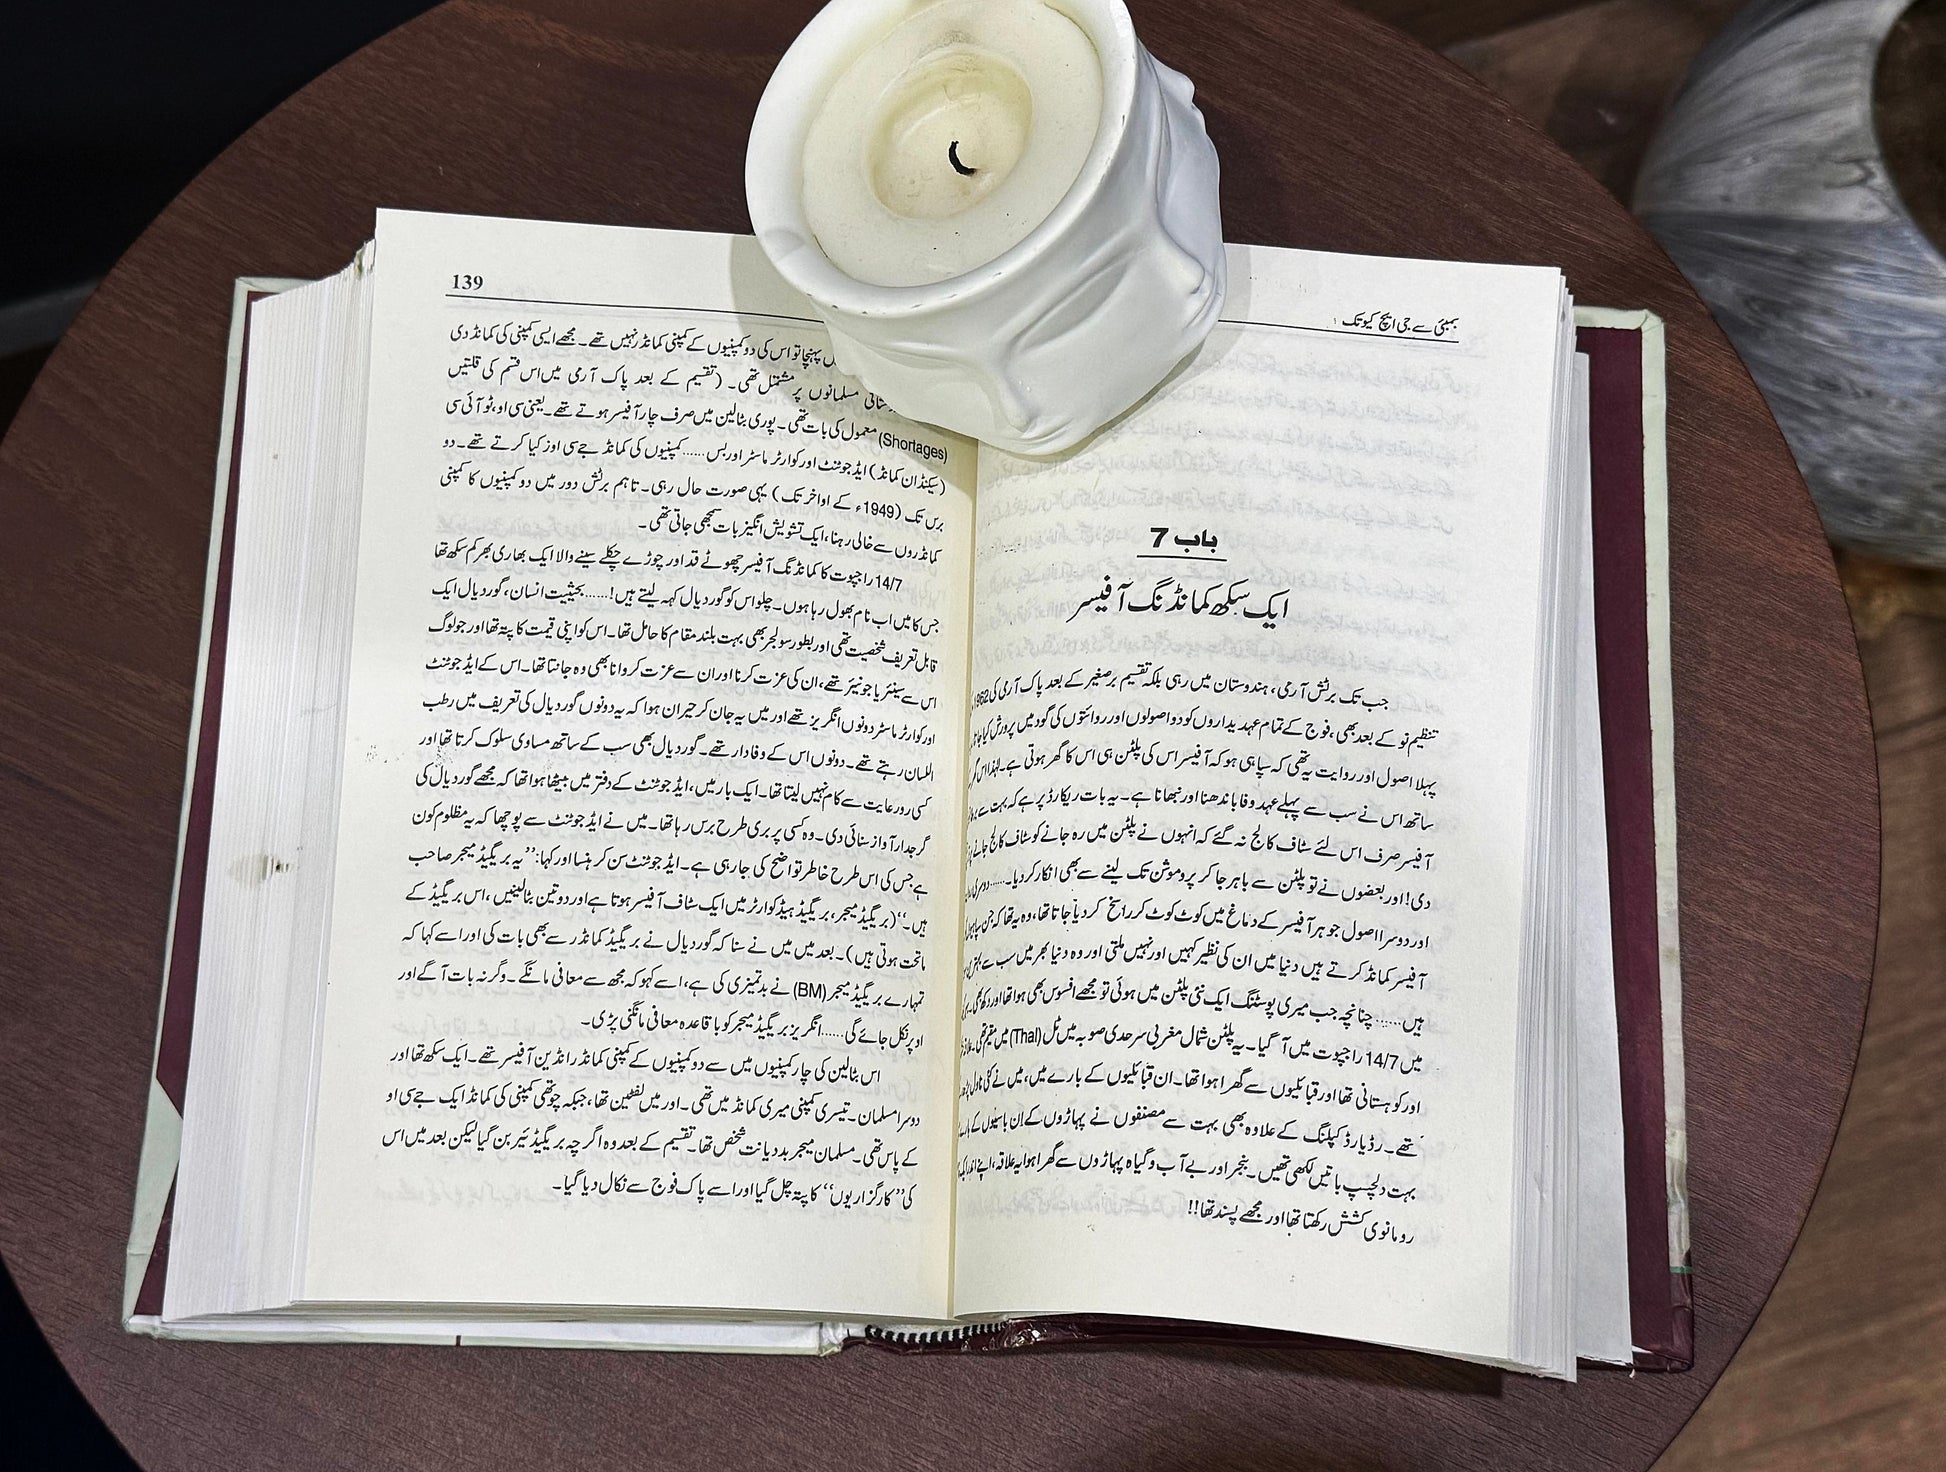 بمبئی سے جی ایچ کیو تک
باب 7
ایک سکھ کمانڈنگ آفیسر
جب تک برٹش آرمی، ہندوستان میں رہی بلکہ تقسیم برصغیر کے بعد پاک آرمی کی
تنظیم نو کے بعد بھی، فوج کے تمام عہدیداروں کو دو اصولوں اور روائتوں کی گود میں پرورش کیا
پہلا اصول اور روایت یہ تھی کہ سپاہی ہو کہ آفیسر اس کی پلٹن ہی اس کا گھر ہوتی ہے۔ لہٰذا اس
ساتھ اس نے سب سے پہلے عہد وفا باندھنا اور نبھانا ہے۔ یہ بات ریکارڈ پر ہے کہ بہت سے
آفیسر صرف اس لئے سٹاف کالج نہ گئے کہ انہوں نے پلٹن میں رہ جانے کو سٹاف کالج جانے
دی! اور بعضوں نے تو پلٹن سے باہر جا کر پروموشن تک لینے سے بھی انکار کر دیا۔......دوسری
اور دوسرا اصول جو ہر آفیسر کے دماغ میں کوٹ کوٹ کر راسخ کر دیا جاتا تھا، وہ یہ تھا کہ جن
آفیسر کمانڈ کرتے ہیں دنیا میں ان کی نظیر کہیں اور نہیں ملتی اور وہ دنیا بھر میں سب سے
ہیں......چنانچہ جب میری پوسٹنگ ایک نئی پلٹن میں ہوئی تو مجھے افسوس بھی ہوا تھا اور دکھ بھی۔
میں 14/7 راجپوت میں آ گیا۔ یہ پلٹن شمال مغربی سرحدی صوبہ میں ٹل (Thal) میں مقیم تھی۔
اور کوہستانی تھا اور قبائلیوں سے گھرا ہوا تھا۔ ان قبائلیوں کے بارے میں، میں نے کئی ناول
تھے۔ رڈیارڈ کپلنگ کے علاوہ بھی بہت سے مصنفوں نے پہاڑوں کے ان باسیوں کے
بہت دلچسپ باتیں لکھی تھیں۔ بنجر اور بے آب و گیاہ پہاڑوں سے گھرا ہوا یہ علاقہ، اپنے اندر
رومانوی کشش رکھتا تھا اور مجھے پسند تھا!!
139
پہنچا تو اس کی دو کمپنیوں کے کمپنی کمانڈر نہیں تھے۔ مجھے ایسی کمپنی کی کمانڈ دی
مسلمانوں پر مشتمل تھی۔ (تقسیم کے بعد پاک آرمی میں اس قسم کی قلتیں
(Shortages) معمول کی بات تھی۔ پوری بٹالین میں صرف چار آفیسر ہوتے تھے۔ یعنی سی او، ٹو آئی سی
(سیکنڈ ان کمانڈ) ایڈجوٹنٹ اور کوارٹر ماسٹر اور بس......کمپنیوں کی کمانڈ جے سی اوز کیا کرتے تھے۔ دو
برس تک (1949ء کے اواخر تک) یہی صورت حال رہی۔ تاہم برٹش دور میں دو کمپنیوں کا کمپنی
کمانڈروں سے خالی رہنا، ایک تشویش انگیز بات سمجھی جاتی تھی۔
14/7 راجپوت کا کمانڈنگ آفیسر چھوٹے قد اور چوڑے چکلے سینے والا ایک بھاری بھر کم سکھ تھا
جس کا میں اب نام بھول رہا ہوں۔ چلو اس کو گوردیال کہہ لیتے ہیں!......بحیثیت انسان، گوردیال ایک
قابل تعریف شخصیت تھی اور بطور سولجر بھی بہت بلند مقام کا حامل تھا۔ اس کو اپنی قیمت کا پتہ تھا اور جو لوگ
اس سے سینئر یا جونیئر تھے، ان کی عزت کرنا اور ان سے عزت کروانا بھی وہ جانتا تھا۔ اس کے ایڈجوٹنٹ
اور کوارٹر ماسٹر دونوں انگریز تھے اور میں یہ جان کر حیران ہوا کہ یہ دونوں گوردیال کی تعریف میں رطب
اللسان رہتے تھے۔ دونوں اس کے وفادار تھے۔ گوردیال بھی سب کے ساتھ مساوی سلوک کرتا تھا اور
کسی رو رعایت سے کام نہیں لیتا تھا۔ ایک بار میں، ایڈجوٹنٹ کے دفتر میں بیٹھا ہوا تھا کہ مجھے گوردیال کی
گرجدار آواز سنائی دی۔ وہ کسی پر بری طرح برس رہا تھا۔ میں نے ایڈجوٹنٹ سے پوچھا کہ یہ مظلوم کون
ہے جس کی اس طرح خاطر تواضع کی جا رہی ہے۔ ایڈجوٹنٹ سن کر ہنسا اور کہا: ’’یہ بریگیڈ میجر صاحب
ہیں۔‘‘ (بریگیڈ میجر، بریگیڈ ہیڈکوارٹر میں ایک سٹاف آفیسر ہوتا ہے اور دو تین بٹالینیں، اس بریگیڈ کے
ماتحت ہوتی ہیں)۔ بعد میں میں نے سنا کہ گوردیال نے بریگیڈ کمانڈر سے بھی بات کی اور اسے کہا کہ
تمہارے بریگیڈ میجر (BM) نے بدتمیزی کی ہے، اسے کہو کہ مجھ سے معافی مانگے۔ وگرنہ بات آگے اور
اوپر نکل جائے گی......انگریز بریگیڈ میجر کو باقاعدہ معافی مانگنی پڑی۔
اس بٹالین کی چار کمپنیوں میں سے دو کمپنیوں کے کمپنی کمانڈر انڈین آفیسر تھے۔ ایک سکھ تھا اور
دوسرا مسلمان۔ تیسری کمپنی میری کمانڈ میں تھی۔ اور میں لفٹین تھا، جبکہ چوتھی کمپنی کی کمانڈ ایک جے سی او
کے پاس تھی۔ مسلمان میجر بددیانت شخص تھا۔ تقسیم کے بعد وہ اگرچہ بریگیڈئیر بن گیا لیکن بعد میں اس
کی ’’کارگزاریوں‘‘ کا پتہ چل گیا اور اسے پاک فوج سے نکال دیا گیا۔